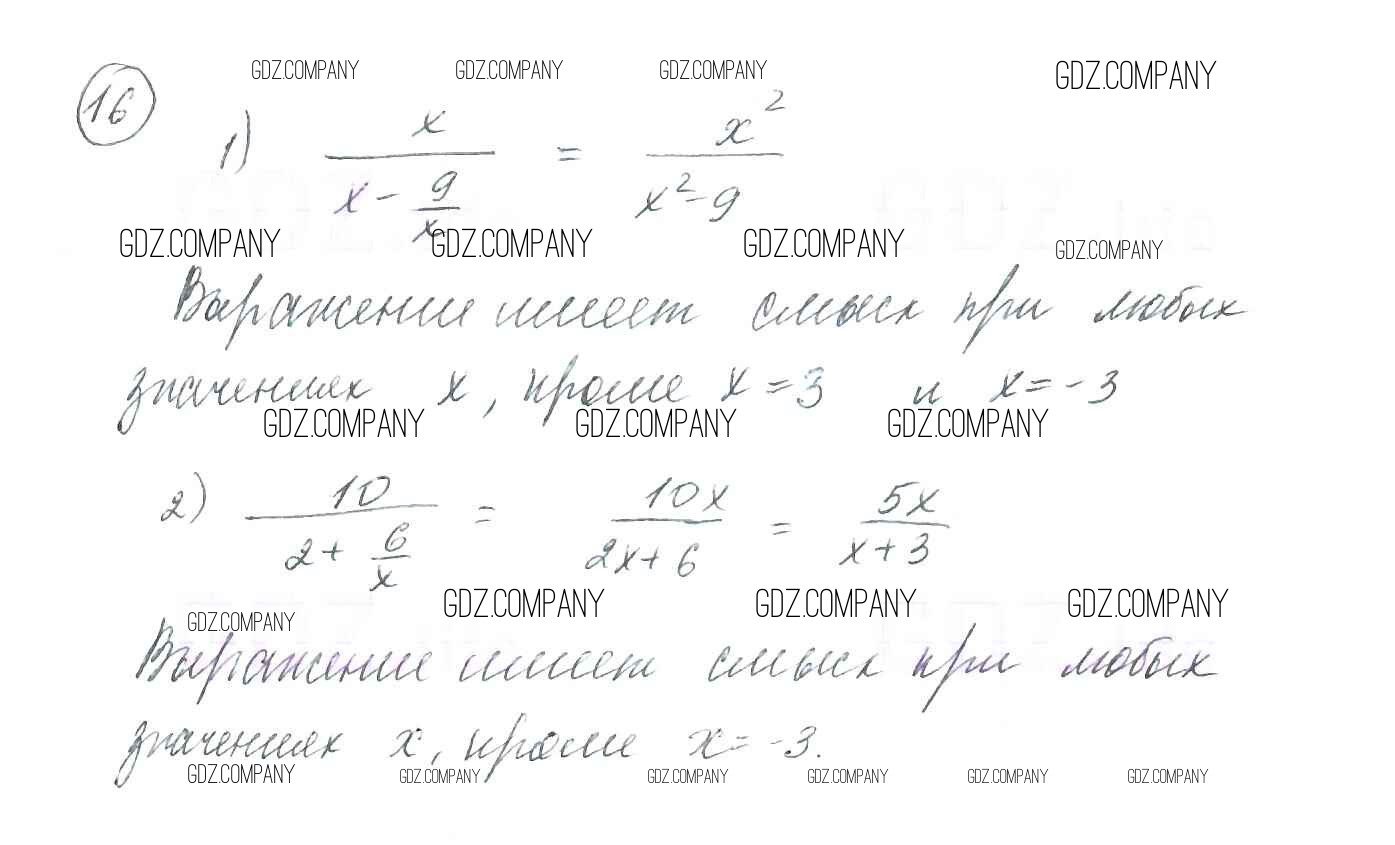 GDZ.COMPANY GDZ.COMPANY GDZ.COMPANY GDZ.COMPANY
16
1) x / (x - 9/x) = x² / (x² - 9)
GDZ.COMPANY GDZ.COMPANY GDZ.COMPANY GDZ.COMPANY
Выражение имеет смысл при любых
значениях x, кроме x = 3 и x = -3
GDZ.COMPANY GDZ.COMPANY GDZ.COMPANY
2) 10 / (2 + 6/x) = 10x / (2x + 6) = 5x / (x + 3)
GDZ.COMPANY GDZ.COMPANY GDZ.COMPANY GDZ.COMPANY
Выражение имеет смысл при любых
значениях x, кроме x = -3.
GDZ.COMPANY GDZ.COMPANY GDZ.COMPANY GDZ.COMPANY GDZ.COMPANY GDZ.COMPANY